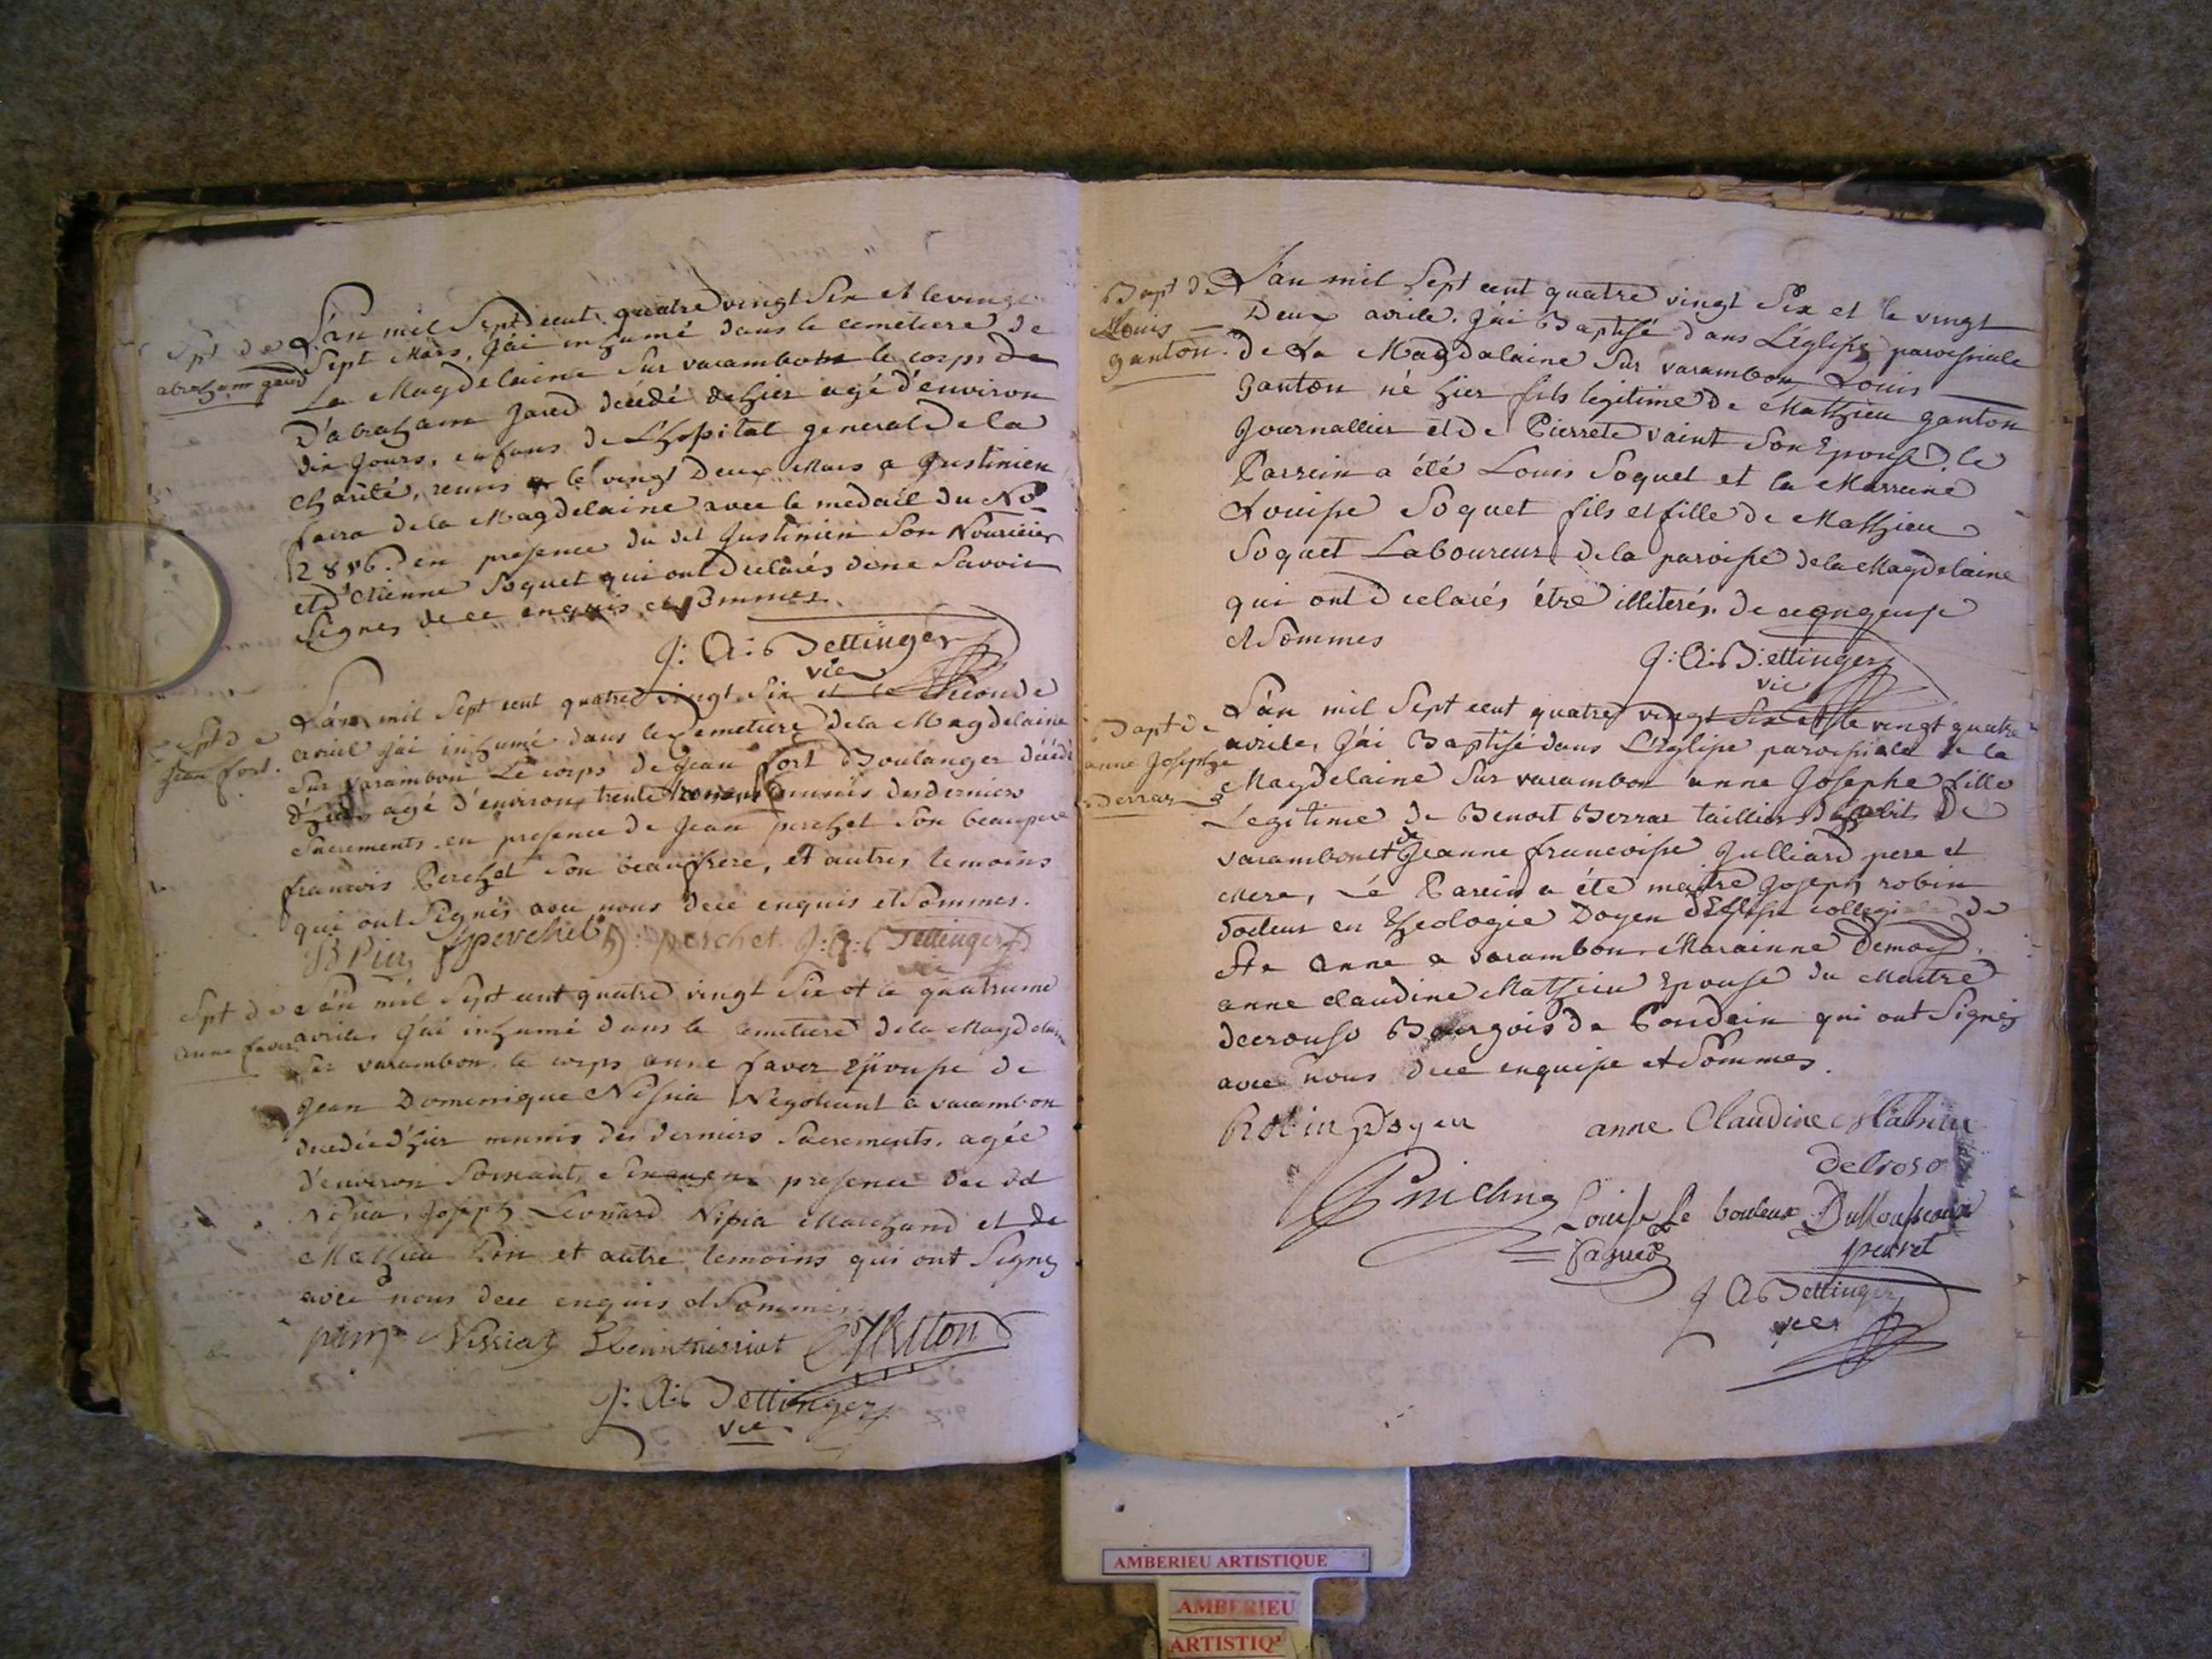 Spt de
abraham gared
L'an mil Sept cent quatre vingt Six et le vingt
Sept Mars, j'ai inhumé dans le cemetiere de
La Magdelaine Sur varambon le corps de
D'abraham Jared décédé dehier agé d'environ
dix Jours, enfans de L'hopital general de la
Charité, remis le vingt Deux Mars a Justinien
favra de la Magdelaine avec le medail du No
2886. en presence du dit Justinien Son Nouricier
et d'etienne Soquet qui ont declarés de ne Savoir
Signer de ce enquis et Sommes.
J: A: Bettinger
vic
Spt de
Jean fort.
L'an mil Sept cent quatre vingt Six et le Second
avril j'ai inhumé dans le Cemetiere de la Magdelaine
Sur varambon Le corps de Jean fort Boulanger décédé
d'hier agé d'environ trente munis des derniers
Sacrements. en presence de Jean perchet Son beaupere
francois Perchet Son beaufrere, et autres temoins
qui ont Signés avec nous de ce enquis et Sommes.
perchet perchet J: A: Bettinger
vic
Spt de
anne faver
L'an mil Sept cent quatre vingt Six et le quatrieme
avrile, j'ai inhumé dans le cemetiere de la Magdelaine
Sur varambon, le corps anne faver Epouse de
Jean Domenique Nissia Negotiant a varambon
decedée d'hier munis des derniers Sacrements. agée
d'environ Soixante Six en presence du dit
Nissia, Joseph Leonard Nissia Marchand et de
Mathieu Pin et autre temoins qui ont Signés
avec nous de ce enquis et Sommes.
Nissiat
J: A: Bettinger
vic
Bapt de
Louis
ganton.
L'an mil Sept cent quatre vingt Six et le vingt
Deux avrile. j'ai Baptisé dans L'eglise paroissiale
de La Magdalaine Sur varambon Louis
ganton né hier fils legitime de Mathieu ganton
Journallier et de Pierrete vaint Son Epouse. le
Parrein a été Louis Soquet et la Marreine
Louise Soquet fils et fille de Mathieu
Soquet Laboureur de la paroisse de la Magdelaine
qui ont declarés être illiterés. de ce enquise
et Sommes
J: A: Bettinger
vic
Bapt de
anne Josephe
Berraz
L'an mil Sept cent quatre vingt Six et le vingt quatre
avrile, j'ai Baptisé dans L'Eglise paroissiale de la
Magdelaine Sur varambon anne Josephe fille
Legitime de Benoit Berraz taillier D'habit De
varambon et de Jeanne francoise Julliard pere et
mere, Le Parein a éte maitre Joseph robin
docteur en theologie Doyen d'Eglise collegiale de
Ste Anne a varambon. Marainne Demois.
anne claudine Mathieu Epouse du Maitre
decrouso Bourgois de Pondain qui ont Signés
avec nous de ce enquise et Sommes.
Robin Doyen
anne Claudine Mathieu
decroso
Louise Le bouleux Durousseaux
paguet
perret
J A Bettinger
vic
AMBERIEU ARTISTIQUE
AMBERIEU
ARTISTIQ